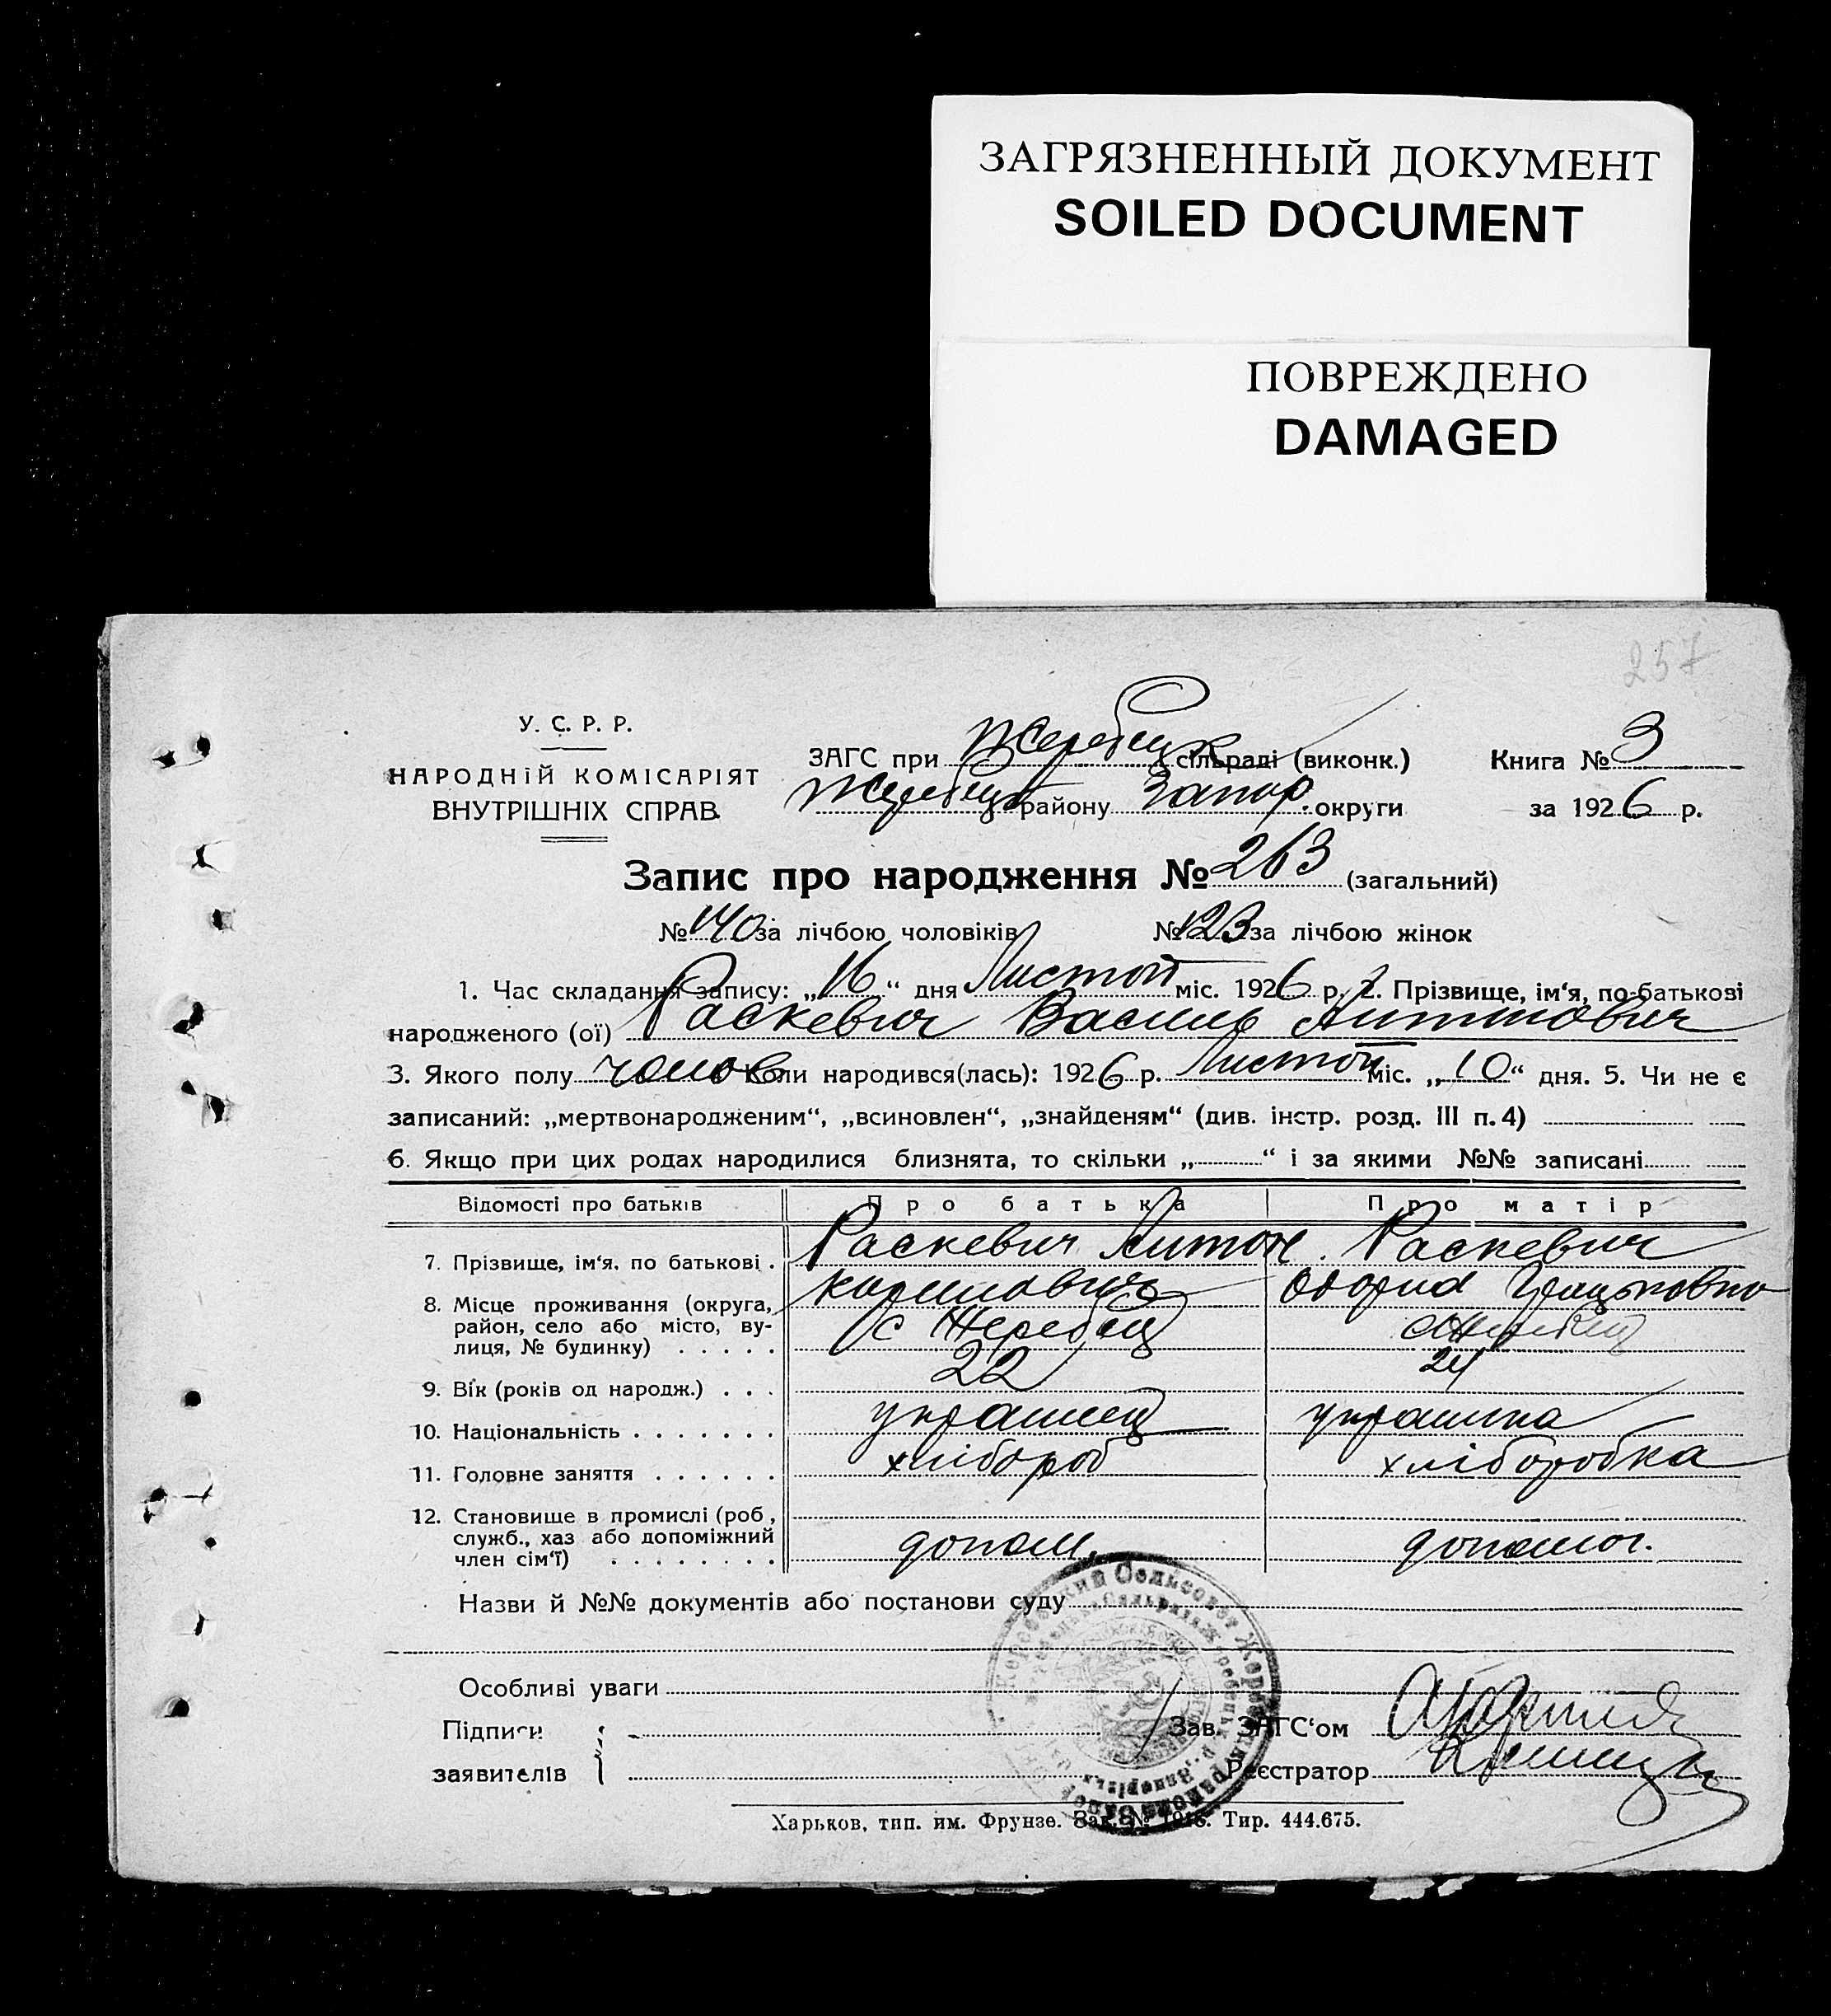 ЗАГРЯЗНЕННЫЙ ДОКУМЕНТ
SOILED DOCUMENT
ПОВРЕЖДЕНО
DAMAGED
257
У. С. Р. Р.
НАРОДНІЙ КОМІСАРІЯТ
ВНУТРІШНІХ СПРАВ
ЗАГС при Жеребецк сільраді (виконк.)
Жеребецк району Запор. округи
Книга № 3
за 1926 р.
Запис про народження № 263 (загальний)
№ 140 за лічбою чоловіків № 123 за лічбою жінок
1. Час складання запису: „16“ дня Листоп міс. 1926 р. 2. Прізвище, ім‘я, по-батькові
народженого (ої) Раскевич Василь Антонович
3. Якого полу чолов Коли народився(лась): 1926 р. Листоп міс. „10“ дня. 5. Чи не є
записаний: „мертвонародженим“, „всиновлен“, „знайденям“ (див. інстр. розд. III п. 4)
6. Якщо при цих родах народилися близнята, то скільки „ “ і за якими №№ записані
Відомості про батьків Про батька Про матір
7. Прізвище, ім‘я, по батькові . Раскевич Антон Раскевич
8. Місце проживання (округа, район, село або місто, вулиця, № будинку) . . . . . с Жеребец
9. Вік (років од народж.) . . . 22 24
10. Національність . . . . . . . українец українка
11. Головне заняття . . . . . . хлібороб хліборобка
12. Становище в промислі (роб, служб., хаз або допоміжний член сім‘ї) . . . . . . . . допом. допомог.
Назви й №№ документів або постанови суду
Особливі уваги
Підписи
заявителів
Зав. ЗАГС‘ом
Реєстратор
Харьков, тип. им. Фрунзе. Зак. № 1918. Тир. 444.675.